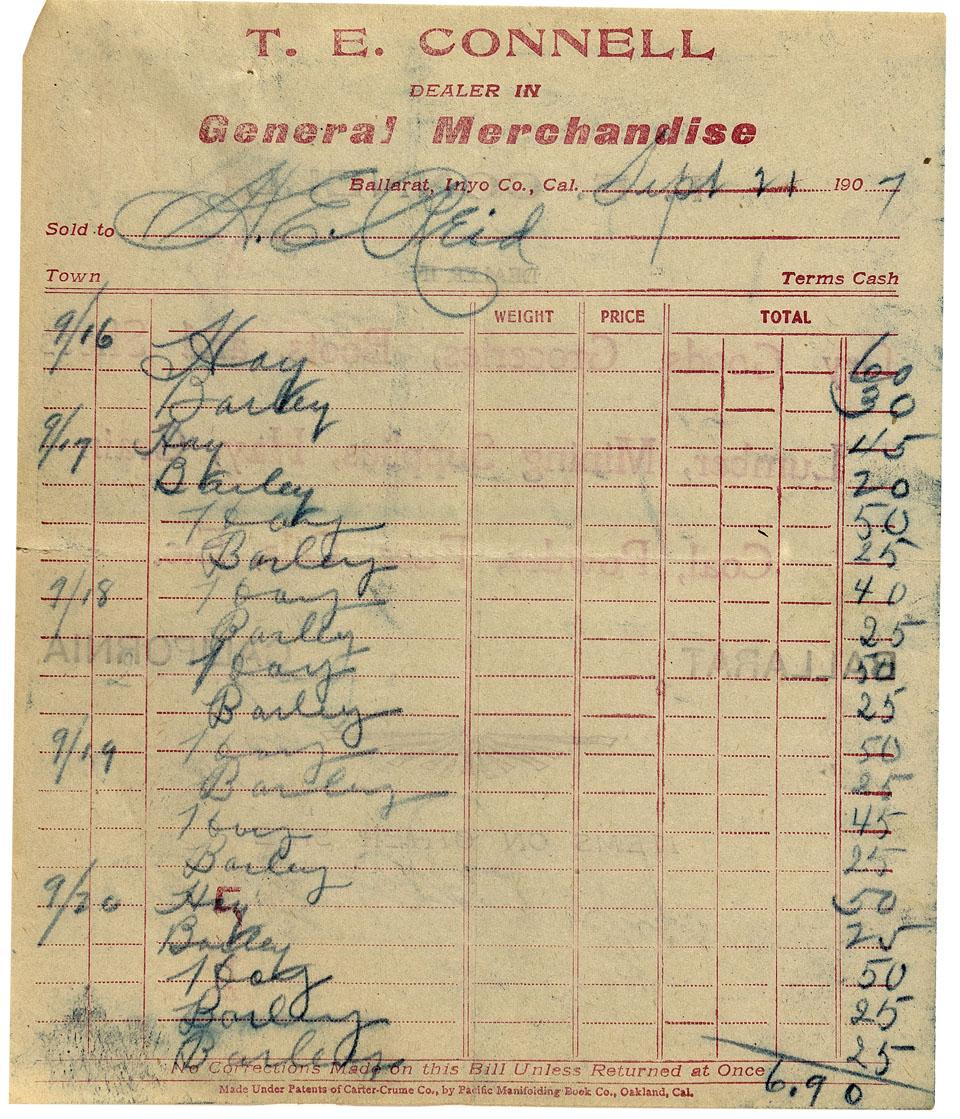 T. E. CONNELL
DEALER IN
General Merchandise
Ballarat, Inyo Co., Cal. Sept 21 1907
Sold to A. E. Reid
Town Terms Cash
WEIGHT PRICE TOTAL
9/16 Hay 60
Barley 30
9/17 Hay 45
Barley 20
Hay 50
Barley 25
9/18 Hay 40
Barley 25
Hay 50
Barley 25
9/19 Hay 50
Barley 25
Hay 45
Barley 25
9/20 Hay 50
Barley 25
Hay 50
Barley 25
Barley 25
No Corrections Made on this Bill Unless Returned at Once
6.90
Made Under Patents of Carter-Crume Co., by Pacific Manifolding Book Co., Oakland, Cal.